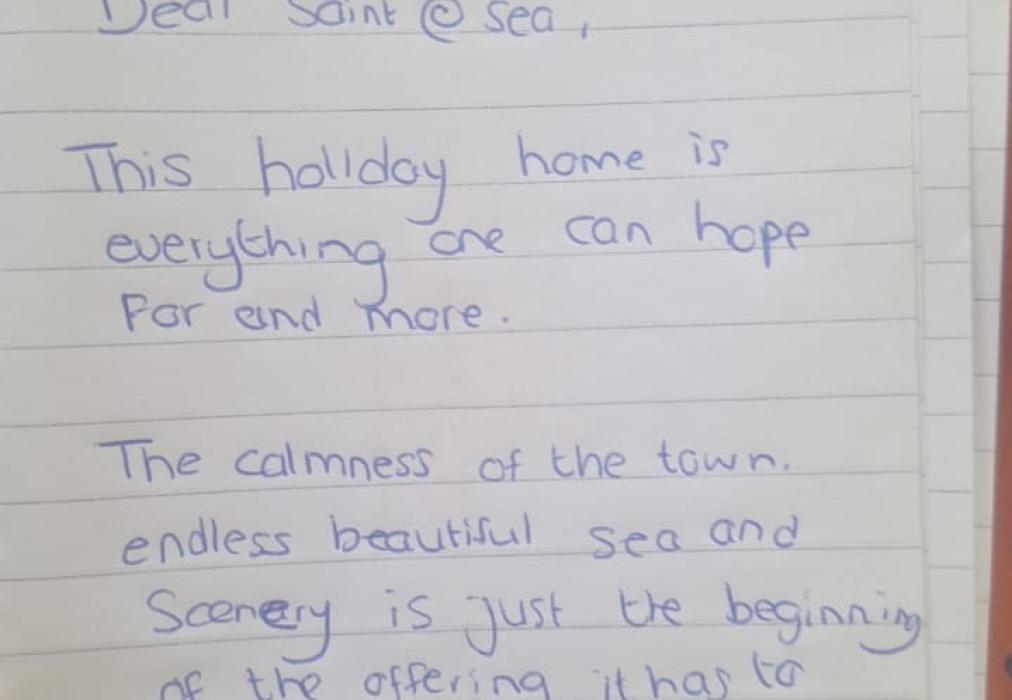 Dear Saint @ sea,
This holiday home is
everything one can hope
For and more.
The calmness of the town.
endless beautiful sea and
Scenery is just the beginning
of the offering it has to